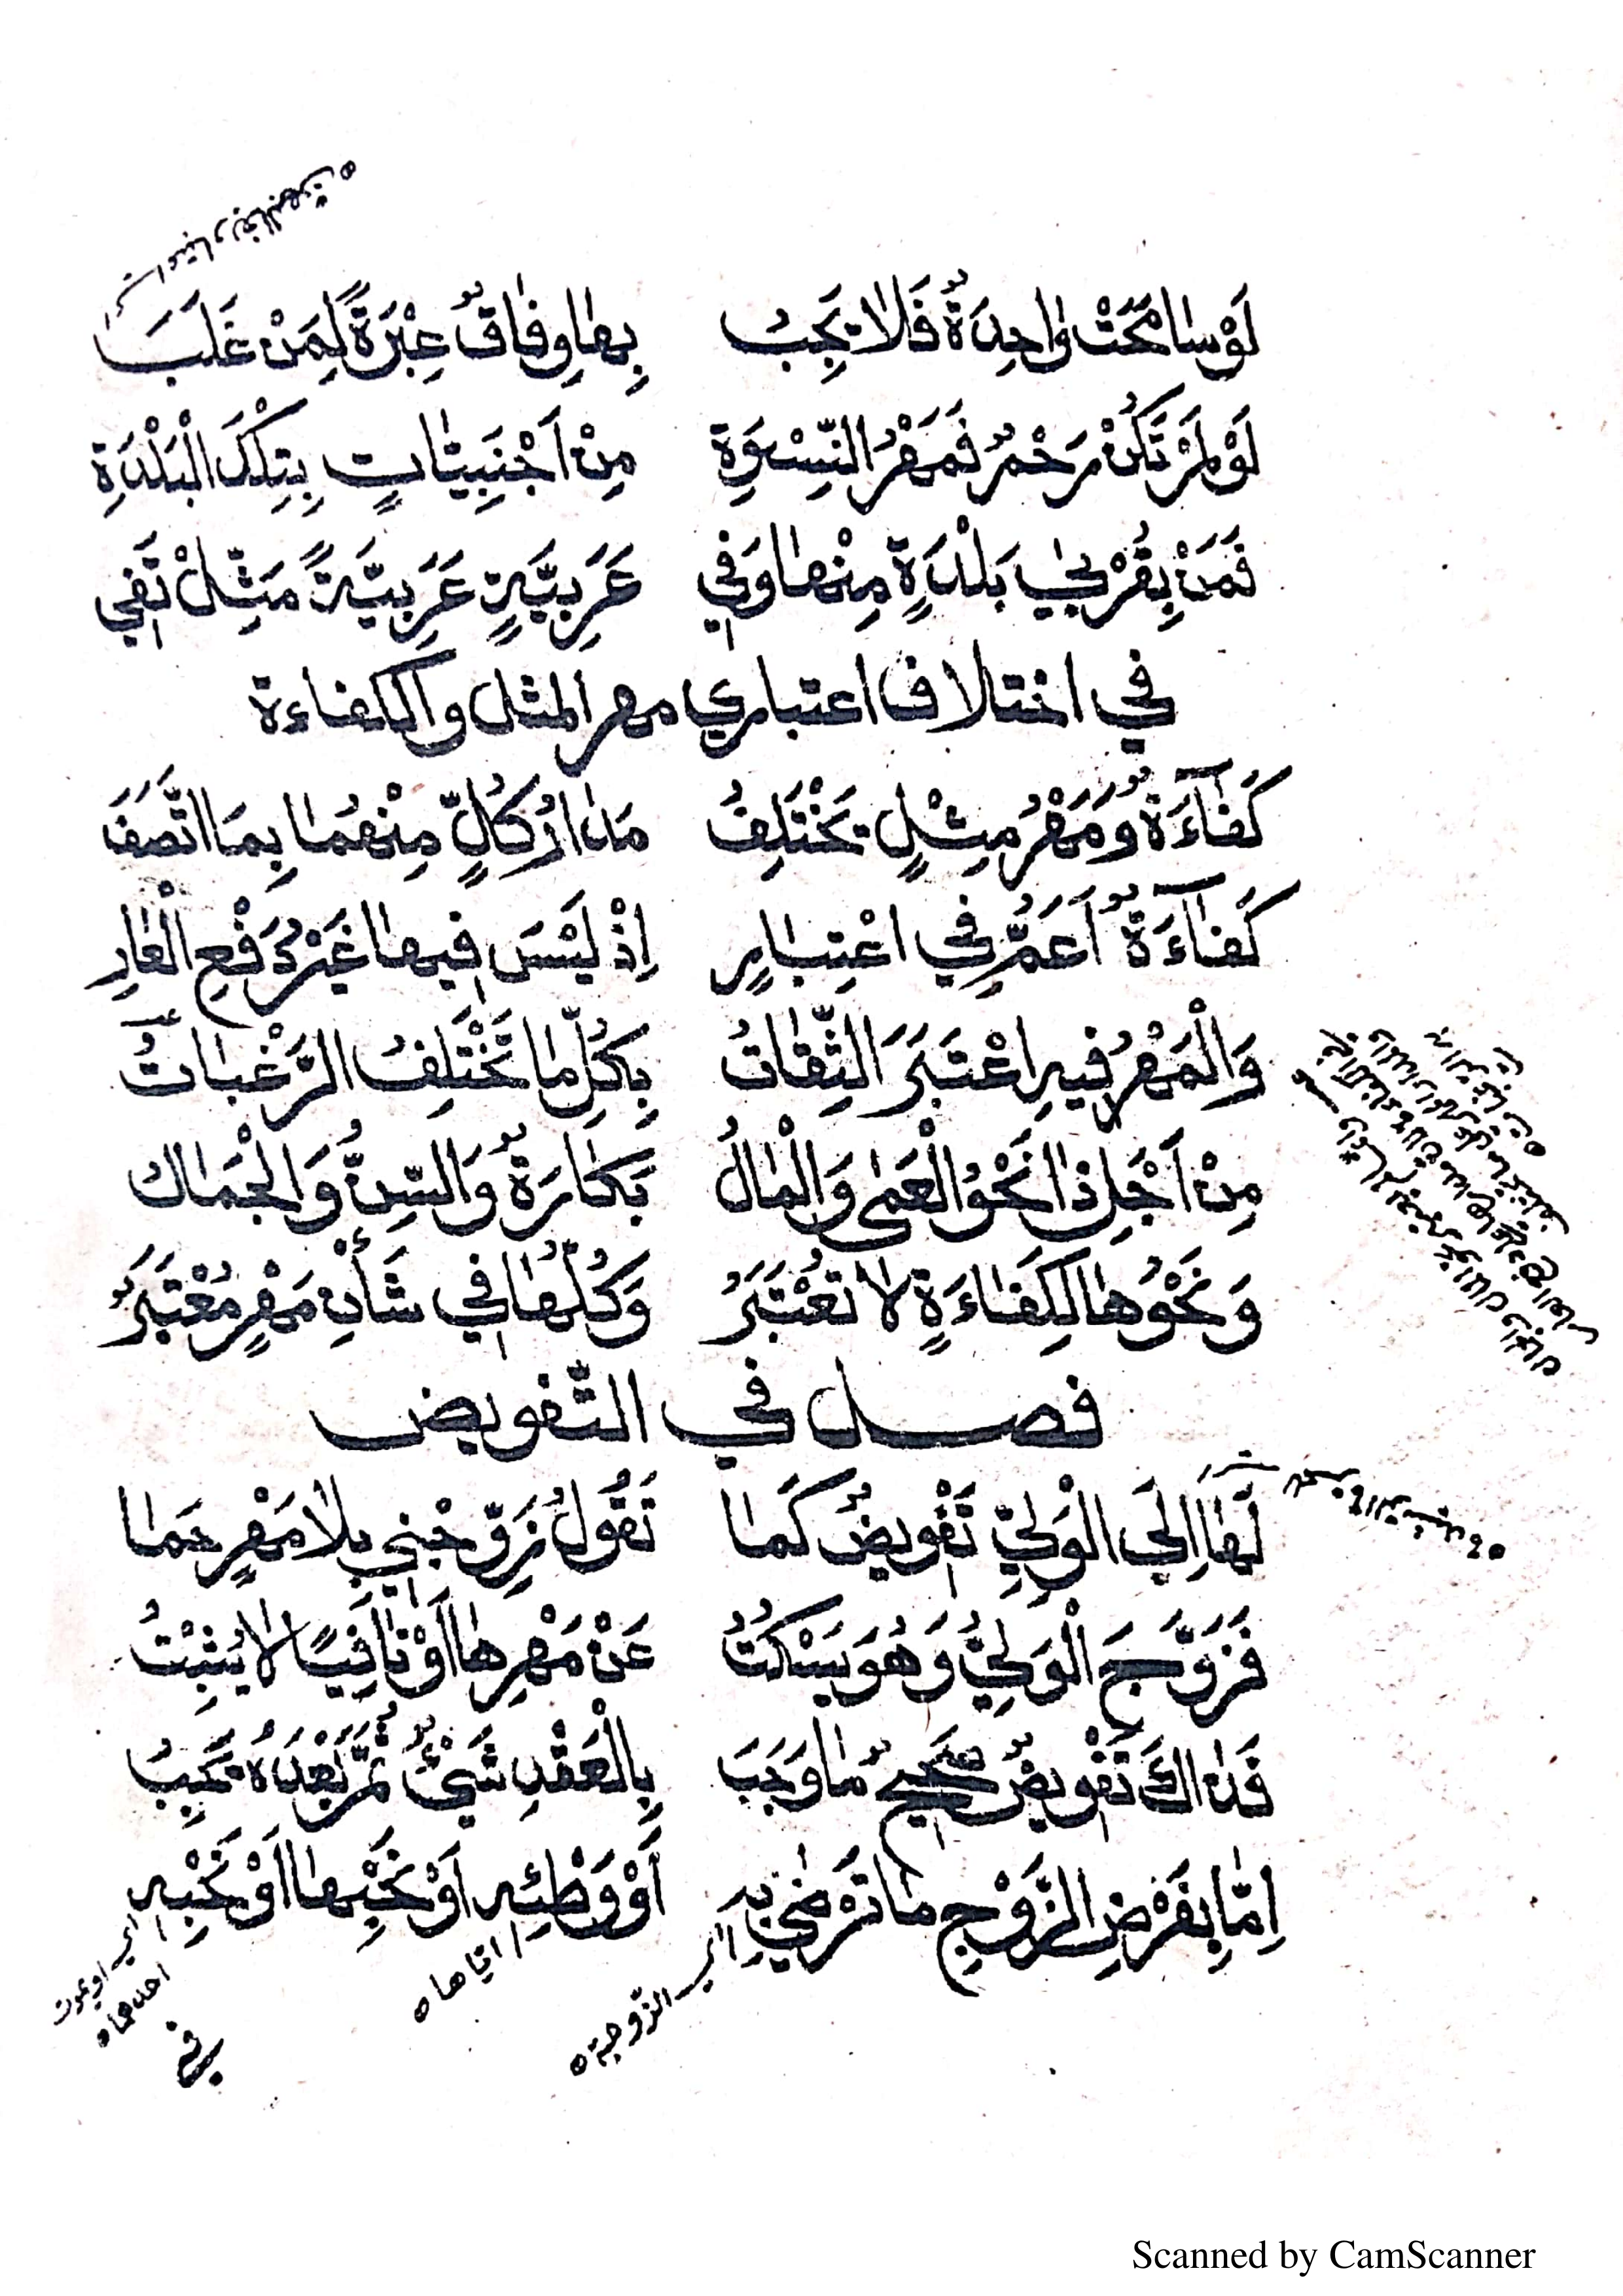 لَوْ سَامَحَتْ وَاحِدَةٌ فَلَا يَجِبُ بِهَا وِفَاقٌ عِبْرَةً لِمَنْ غَلَبَ
لَوْ لَمْ تَكُنْ رَحْمٌ فَمَهْرُ النِّسْوَةِ مِنْ اَجْنَبِيَّاتٍ بِتِلْكَ الْبَلْدَةِ
فَمَنْ بِقُرْبَى بَلْدَةٍ مِنْهَا وَفِي عَرَبِيَّةٍ عَرَبِيَّةً مَثِّلْ تَفِي
في اختلاف اعتباري مهر المثل والكفاءة
كَفَآءَةٌ وَمَهْرُ مِثْلٍ يَخْتَلِفُ مَدَارُ كُلٍّ مِنْهُمَا بِمَا اتَّصَفَ
كَفَآءَةٌ اَعَمُّ فِي اعْتِبَارٍ اِذْ لَيْسَ فِيهَا غَيْرُ دَفْعِ الْعَارِ
وَالْمَهْرُ فِيهِ اعْتَبَرَ الثِّقَاتُ بِكُلِّ مَا تَخْتَلِفُ الرَّغْبَاتُ
مِنْ اَجْلِ ذَا نَحْوُ الْعَمَى وَالْمَالُ بَكَارَةٌ وَالسِّنُّ وَالْجَمَال
وَنَحْوُهَا لِكَفَاءَةٍ لَا تُعْتَبَرُ وَكُلُّهَا فِي شَأْنِ مَهْرٍ مُعْتَبَرٌ
فصل في التّفويض
لَهَا اِلَى الْوَلِيِّ تَفْوِيضٌ كَمَا تَقُولُ زَوِّجْنِي بِلَا مَهْرٍ حَمَا
فَزَوَّجَ الْوَلِيُّ وَهُوَ يَسْكُتُ عَنْ مَهْرِهَا اَوْ نَافِيًا لَا يُثْبِتُ
فَذَاكَ تَفْوِيضٌ صَحِيحٌ مَا وَجَبَ بِالْعَقْدِ شَيْءٌ ثُمَّ بَعْدَهُ يَجِبُ
اِمَّا بِفَرْضِ الزَّوْجِ مَا تَرْضَى بِهِ اَوْ وَطْئِهِ اَوْ نَحْبِهَا اَوْ نَحْبِهِ
اي الزّوجة ه
ايّاها ه
اي او يموت
احدهما ه